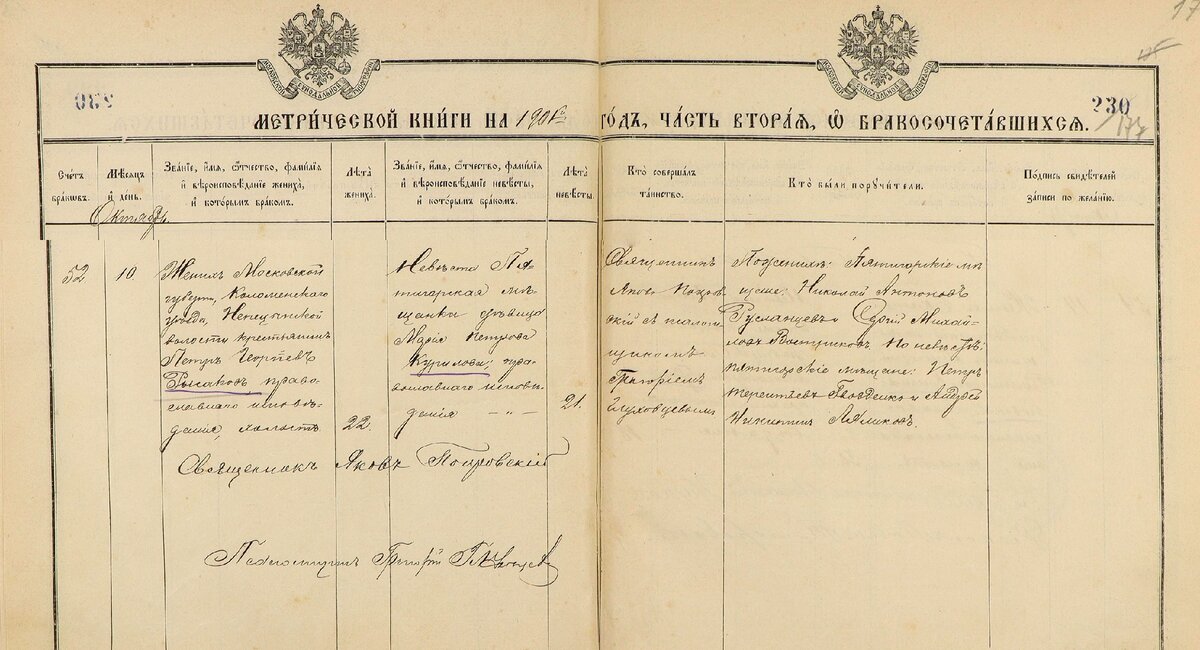 230
МЕТРИ́ЧЕСКОЙ КНИ́ГИ НА 1908 ГО́ДЪ, ЧА́СТЬ ВТОРА́Я, Ѡ БРАКОСОЧЕТА́ВШИХСЯ.
Сче́тъ бра́ковъ.
Мѣ́сяцъ и де́нь.
Зва́нїе, и́мя, ѻ́тчество, фами́лїя и вѣроисповѣ́данїе жениха̀, и кото́рымъ бра́комъ.
Лѣ́та жениха̀.
Зва́нїе, и́мя, ѻ́тчество, фами́лїя и вѣроисповѣ́данїе невѣ́сты, и кото́рымъ бра́комъ.
Лѣ́та невѣ́сты.
Кто̀ соверша́лъ та́инство.
Кто̀ бы́ли поручи́тели.
По́дпись свидѣ́телей за́писи по жела́нїю.
Октябрь
52
10.
Женихъ Московской
губерн., Коломенскаго
уѣзда,
волости крестьянинъ
Петръ Георгіевъ
Рыбаковъ право-
славнаго исповѣ-
данія, холостъ
22.
Невѣста Пя-
тигорская мѣ-
щанка дѣвица
Марія Петрова
Курилова, пра-
вославнаго исповѣ-
данія
21.
Священникъ
Яковъ Покров-
скій съ псалом-
щикомъ
Григоріемъ
Глуховцевымъ
По женихѣ: Пятигорскіе мѣ-
щане: Николай Антоновъ
Русланцевъ и Сергій Михай-
ловъ Востриковъ. По невѣстѣ:
пятигорскіе мѣщане: Петръ
Терентьевъ Гвозденко и Андрей
Никитинъ Ляликовъ.
Священникъ Яковъ Покровскій
Псаломщикъ Григорій Глуховцевъ